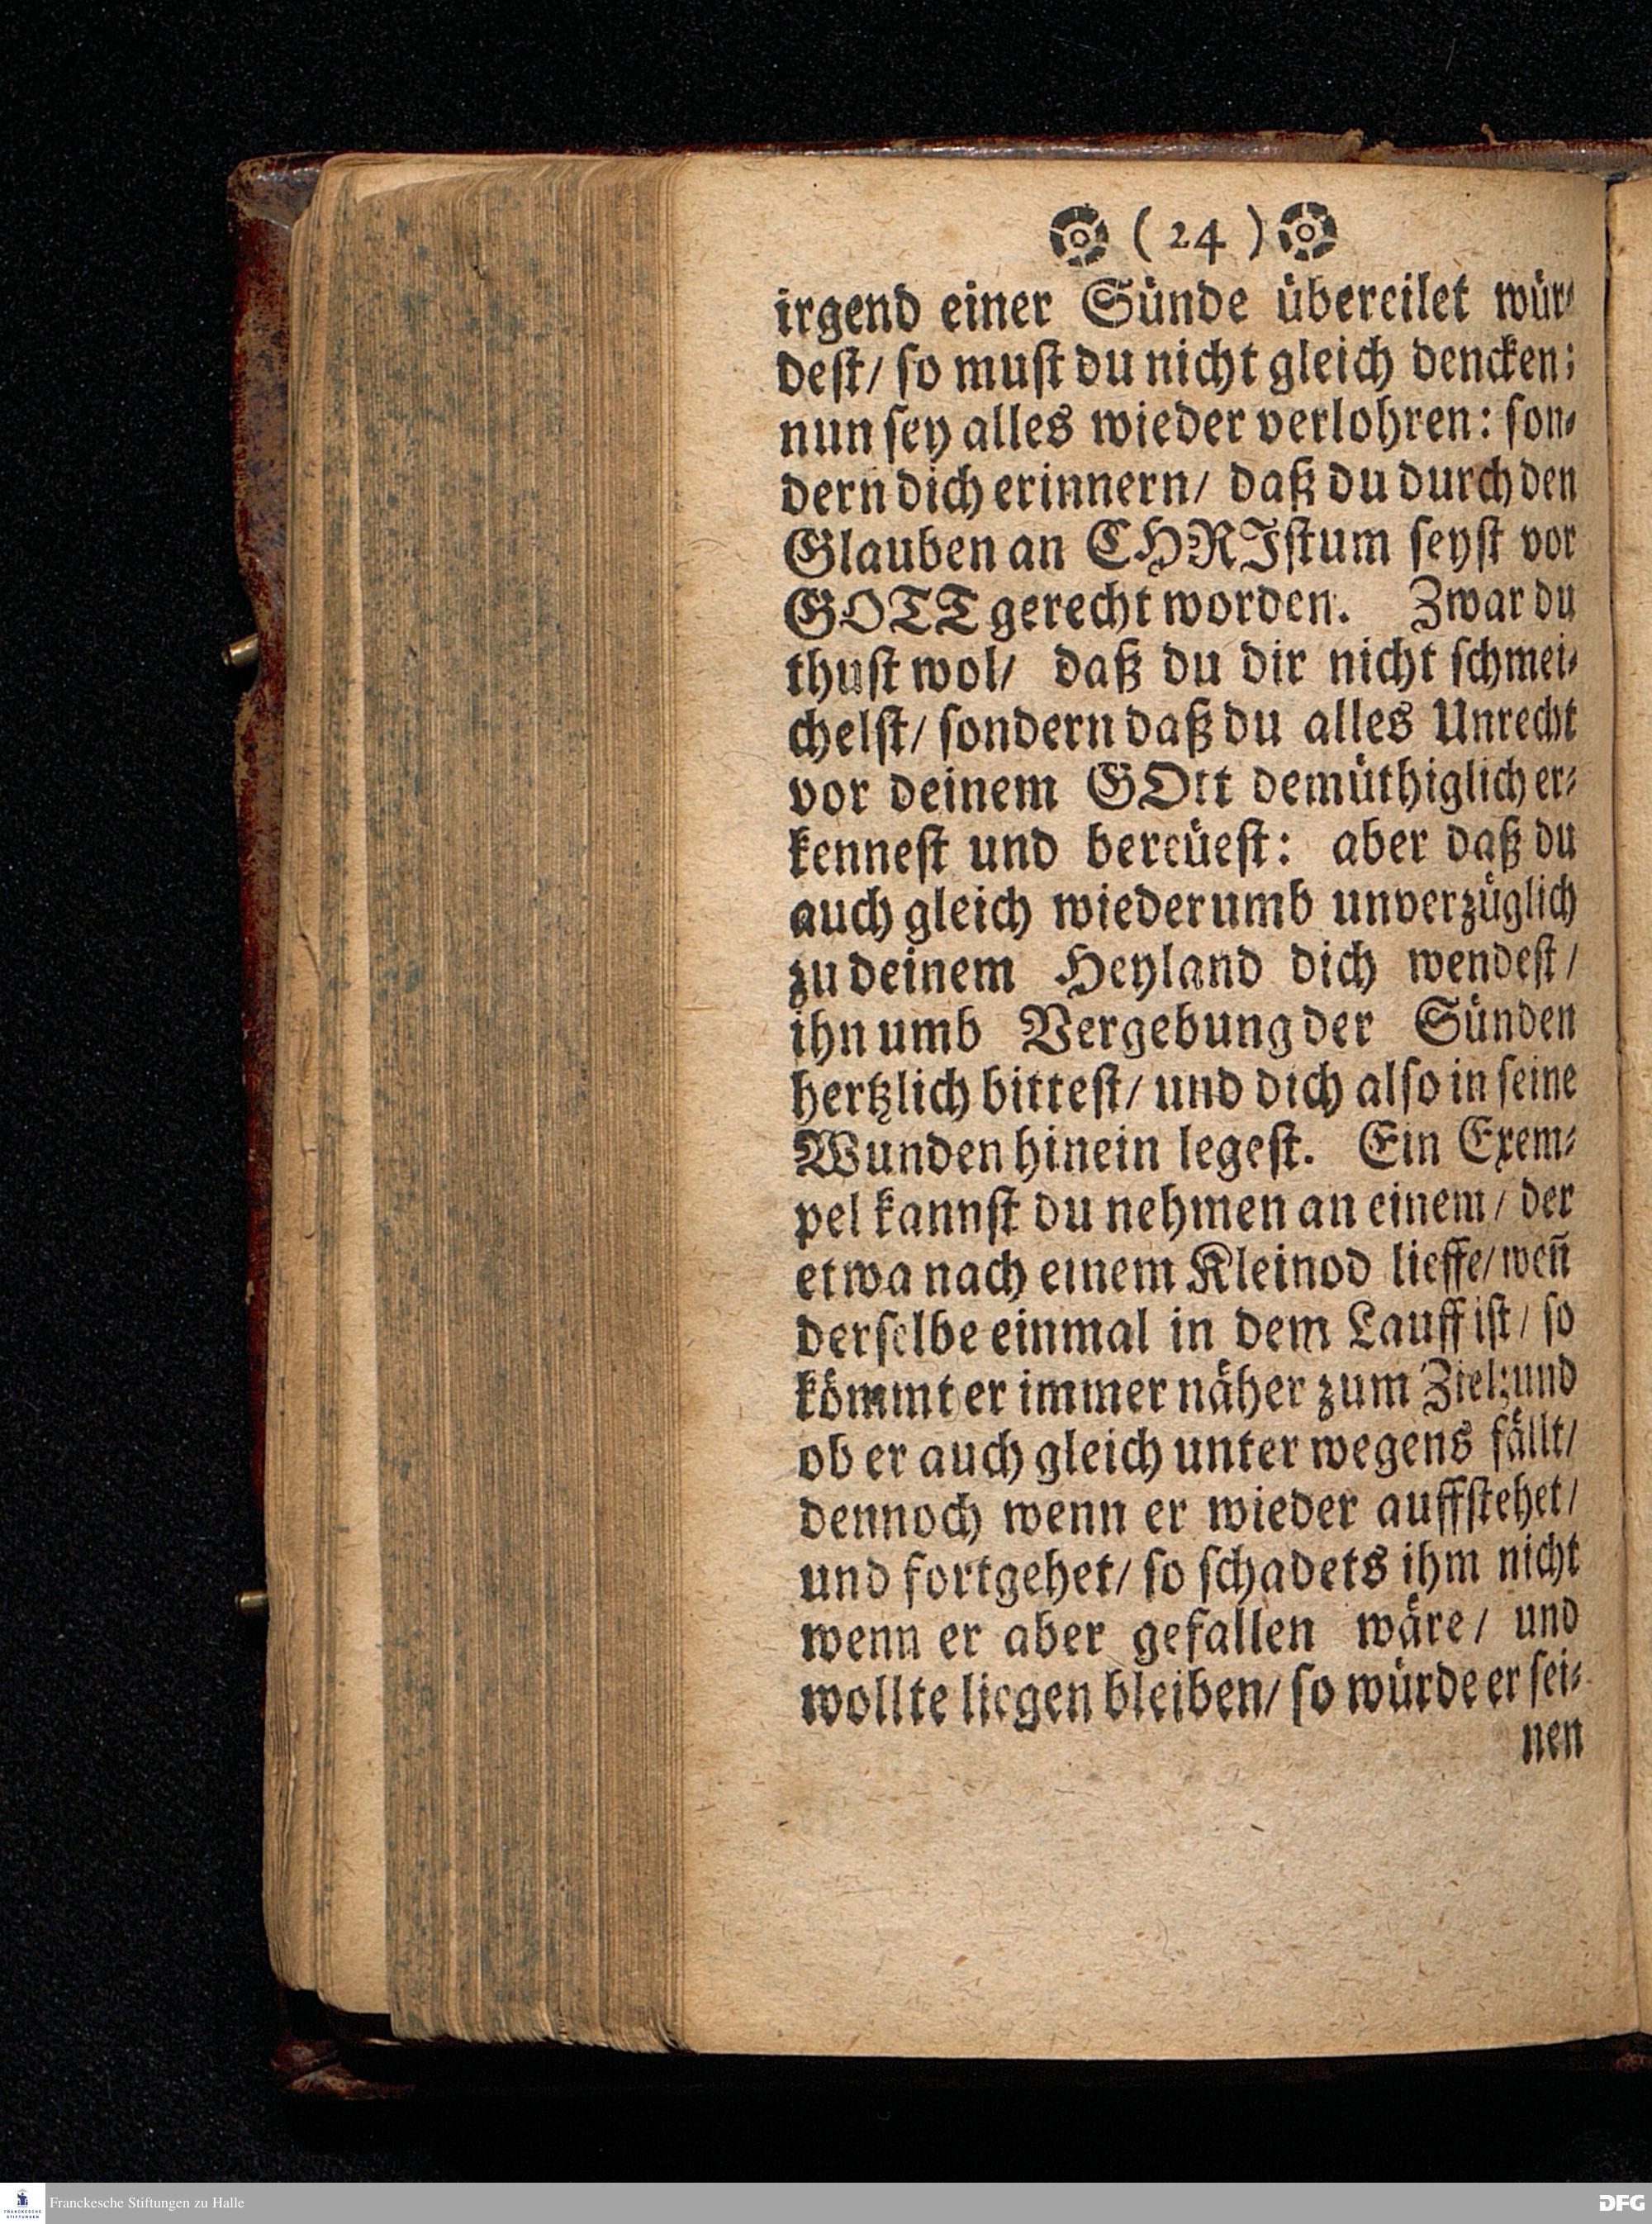 ( 24 )
irgend einer Sünde übereilet wür⸗
deſt/ ſo muſt du nicht gleich dencken;
nun ſey alles wieder verlohren: ſon⸗
dern dich erinnern/ daß du durch den
Glauben an CHRIſtum ſeyſt vor
GOTT gerecht worden. Zwar du
thuſt wol/ daß du dir nicht ſchmei⸗
chelſt/ ſondern daß du alles Unrecht
vor deinem GOtt demüthiglich er⸗
kenneſt und bereüeſt: aber daß du
auch gleich wiederumb unverzüglich
zu deinem Heyland dich wendeſt/
ihn umb Vergebung der Sünden
hertzlich bitteſt/ und dich alſo in ſeine
Wunden hinein legeſt. Ein Exem⸗
pel kannſt du nehmen an einem/ der
etwa nach einem Kleinod lieffe/ weñ
derſelbe einmal in dem Lauff iſt/ ſo
kömmt er immer näher zum Ziel; und
ob er auch gleich unter wegens fällt/
dennoch wenn er wieder auffſtehet/
und fortgehet/ ſo ſchadets ihm nicht
wenn er aber gefallen wäre/ und
wollte liegen bleiben/ ſo würde er ſei⸗
nen
Franckesche Stiftungen zu Halle
DFG